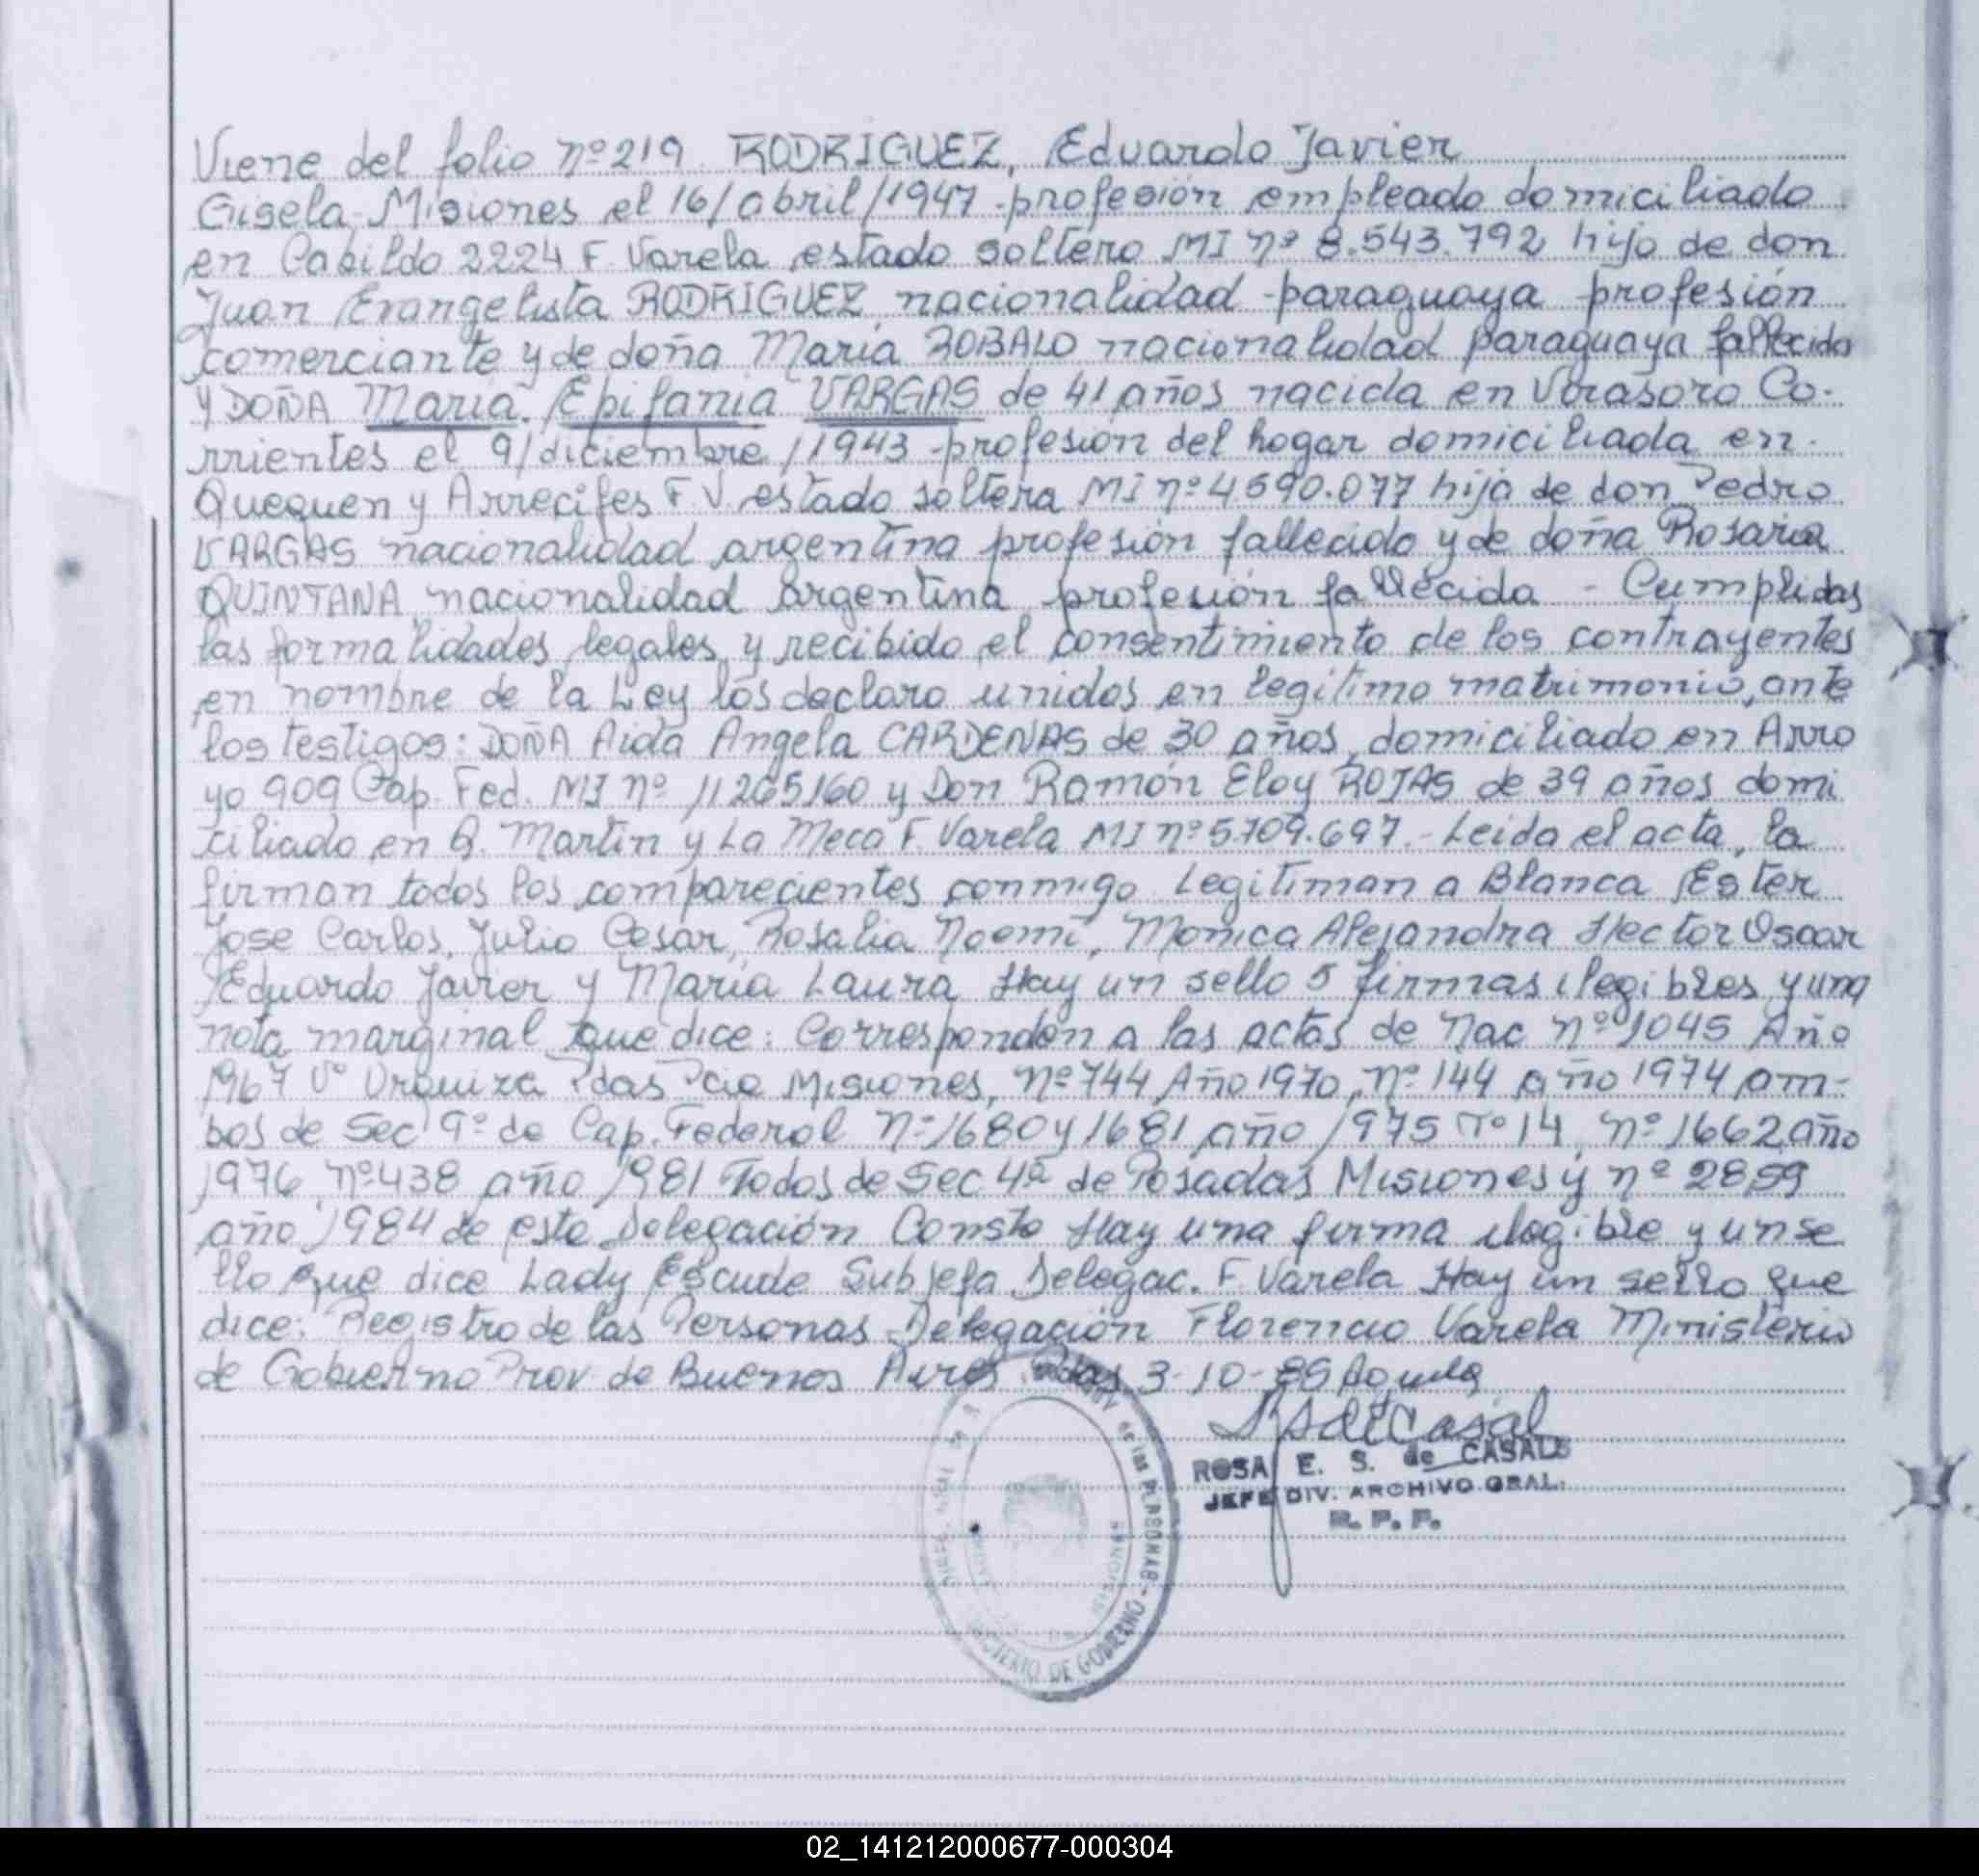 Viene del folio nº 219 RODRIGUEZ, Eduardo Javier
Gisela-Misiones el 16/abril/1947-profesión empleado domiciliado
en Cabildo 2224 F. Varela estado soltero MI nº 8.543.792 hijo de don
Juan Evangelista RODRIGUEZ, nacionalidad paraguaya profesión
comerciante y de doña Maria BOBALO nacionalidad paraguaya fallecida
Y DOÑA Maria Epifania VARGAS de 41 años nacida en Virasoro Co-
rrientes el 9/diciembre/1943-profesión del hogar domiciliada en
Quequen y Arrecifes F.V. estado soltera MI nº 4.590.077 hija de don Pedro
VARGAS nacionalidad argentina profesión fallecido y de doña Rosaria
QUINTANA, nacionalidad argentina profesión fallecida - Cumplidas
las formalidades legales y recibido el consentimiento de los contrayentes
en nombre de la Ley los declaro unidos en legítimo matrimonio, ante
los testigos: DOÑA Aida Angela CARDENAS de 30 años, domiciliado en Arro
yo 909 Cap. Fed. MI nº 11265160 y Don Ramón Eloy ROJAS de 39 años domi
ciliado en G. Martin y La Meca F. Varela MI nº 5.709.697.- Leida el acta, la
firman todos los comparecientes conmigo. Legitiman a Blanca Ester
Jose Carlos, Julio Cesar, Rosalia Noemi, Monica Alejandra Hector Oscar
Eduardo Javier y Maria Laura Hay un sello 5 firmas ilegibles y una
nota marginal que dice: Corresponden a las actas de Nac nº 1045 Año
1967 Vº Urquiza Pdas Pcia Misiones, nº 744 Año 1970, nº 144 año 1974 am-
bos de Sec 9º de Cap. Federal nº 1680 y 1681 año 1975 Tº 14, nº 1662 año
1976, nº 438 año 1981 Todos de Sec 4ª de Posadas Misiones y nº 2859
año 1984 de esta Delegación Conste Hay una firma ilegible y un se
llo que dice Lady Escude Subjefa Delegac. F. Varela Hay un sello que
dice: Registro de las Personas Delegación Florencio Varela Ministerio
de Gobierno Prov. de Buenos Aires Pdas 3-10-85
ROSA E. S. de CASALS
JEFE DIV. ARCHIVO GRAL.
R. P. P.
de las PERSONAS - MINISTERIO DE GOBIERNO
02_141212000677-000304